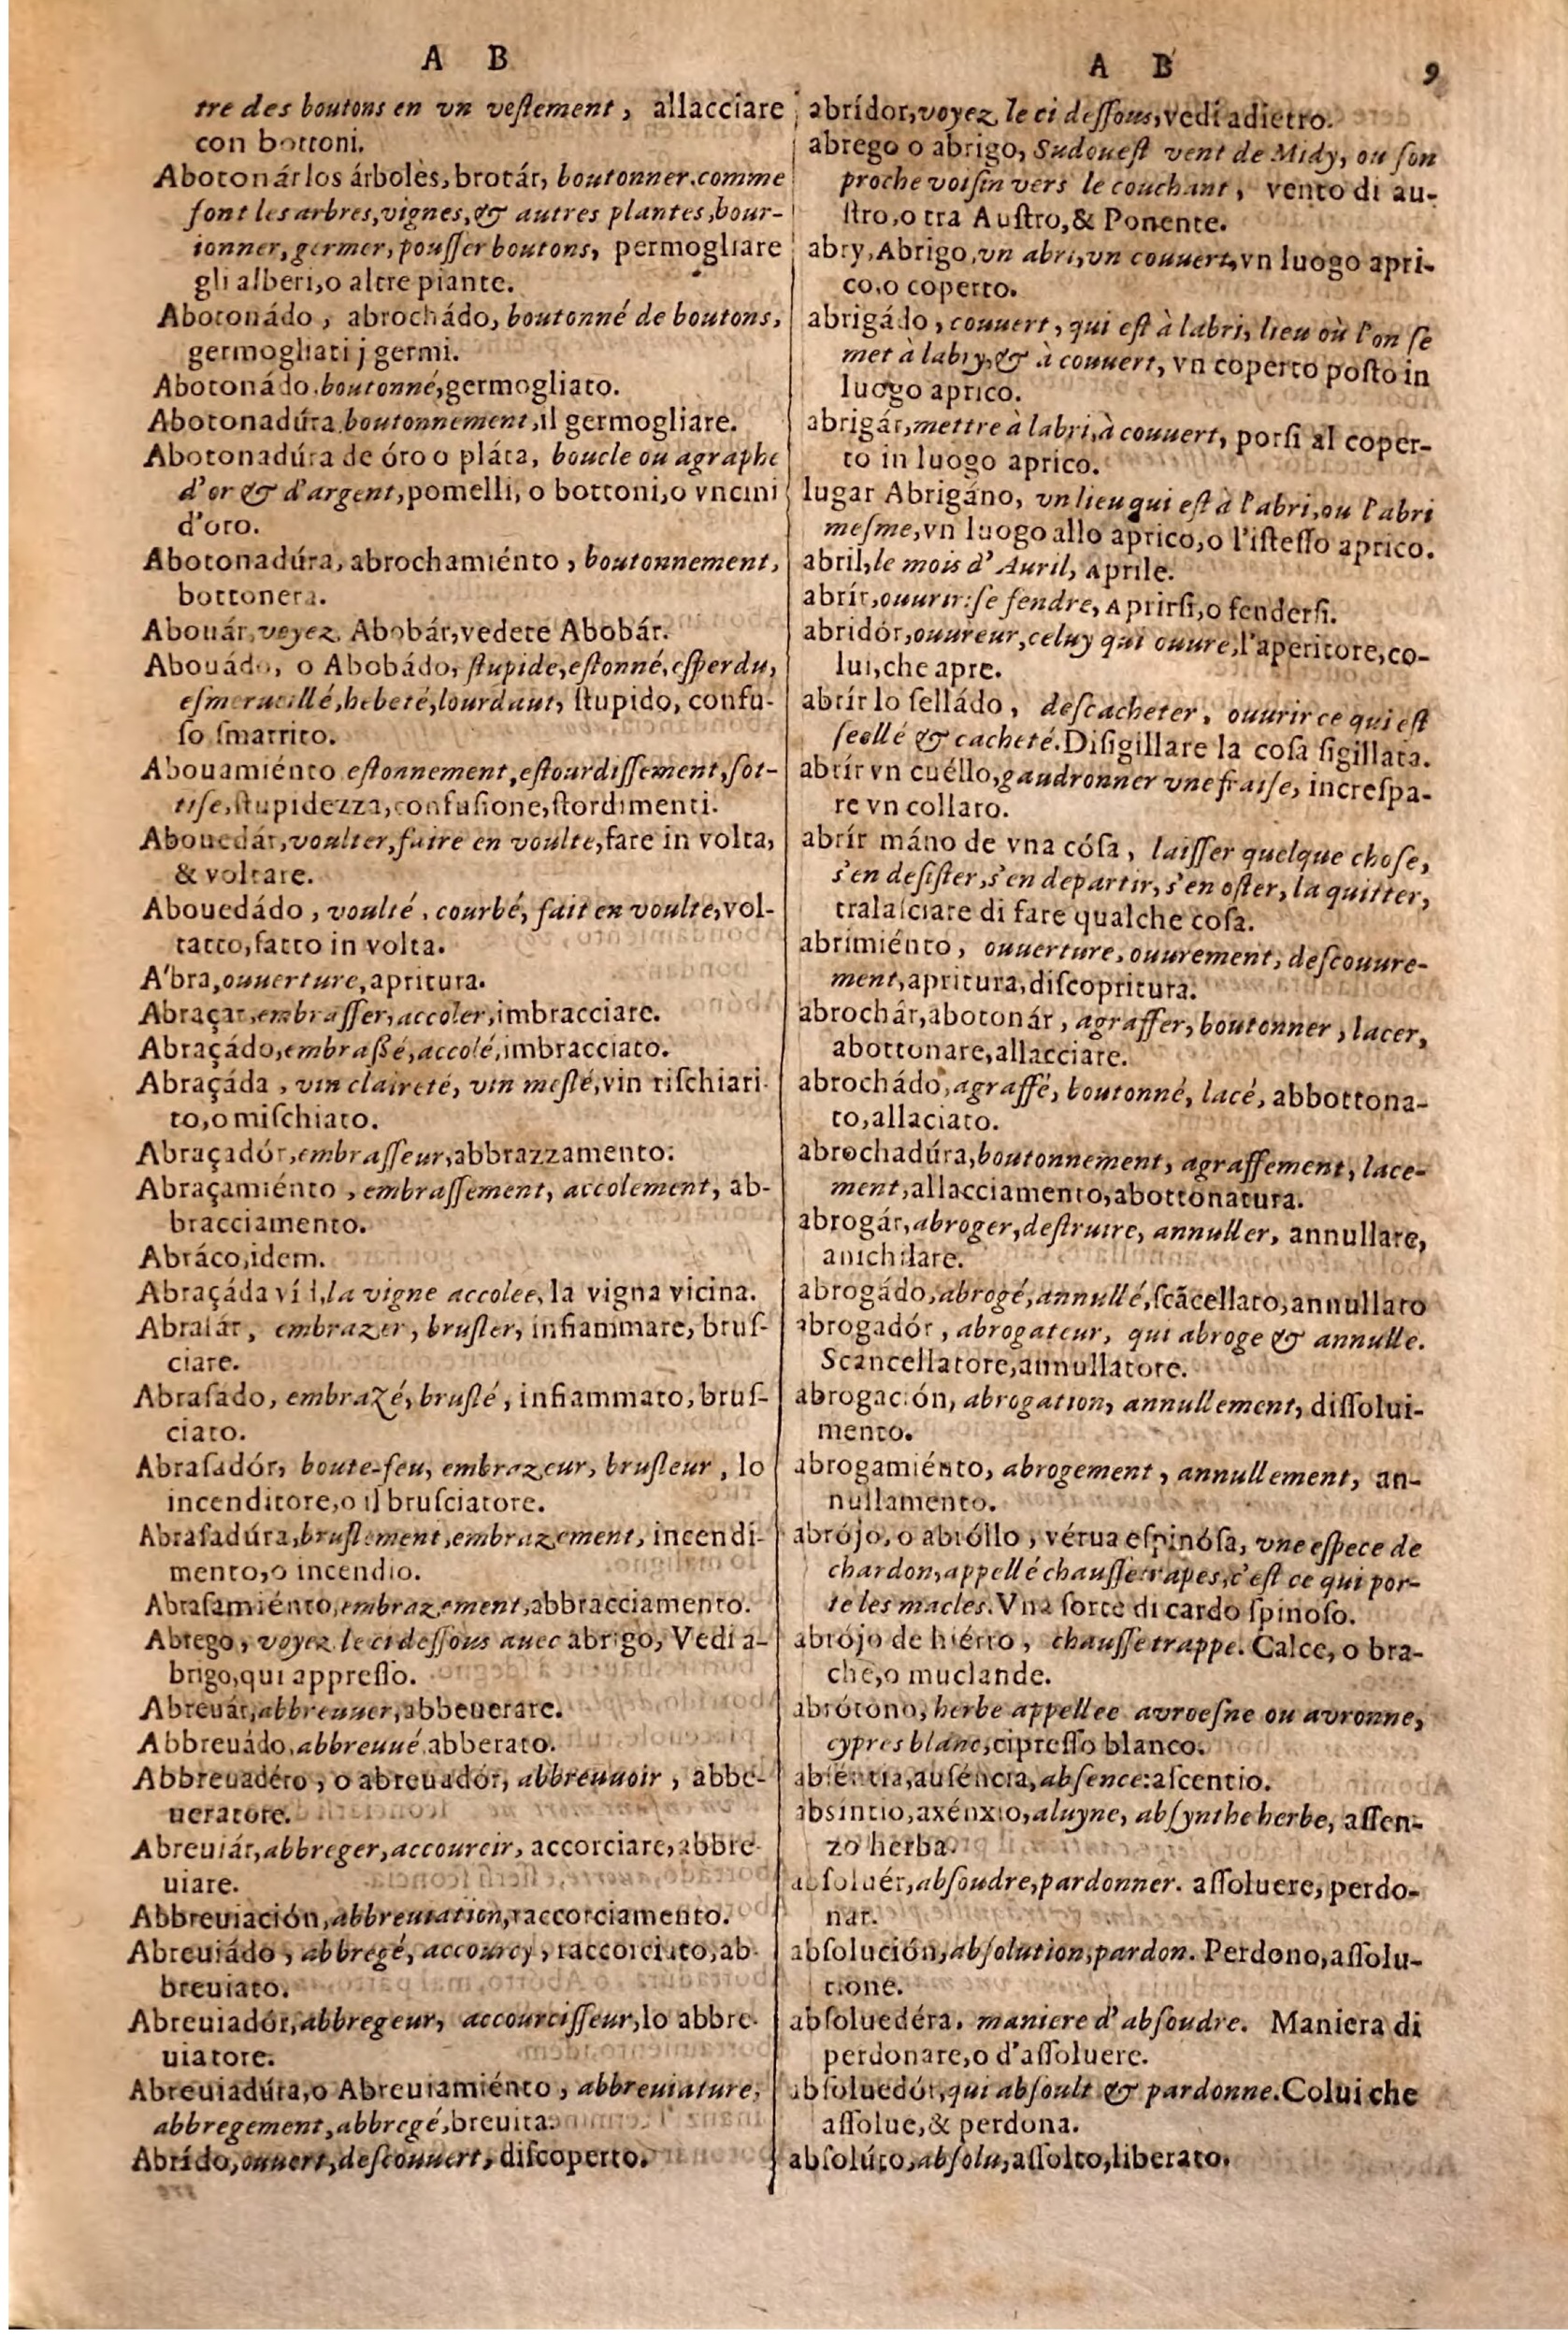 A B
tre des boutons en vn veſtement, allacciare
con bottoni.
Abotonár los árboles, brotár, boutonner, comme
font les arbres, vignes, & autres plantes, bour-
ionner, germer, pouſſer boutons, permogliare
gli alberi, o altre piante.
Abotonádo, abrochádo, boutonné de boutons,
germogliati j germi.
Abotonádo, boutonné, germogliato.
Abotonadúra, boutonnement, il germogliare.
Abotonadúra de óro o pláta, boucle ou agraphe
d'or & d'argent, pomelli, o bottoni, o vncini
d'oro.
Abotonadúra, abrochamiénto, boutonnement,
bottonera.
Abouár, voyez, Abobár, vedete Abobár.
Abouádo, o Abobádo, ſtupide, eſtonné, eſperdu,
eſmerueillé, hebeté, lourdaut, ſtupido, confu-
ſo ſmarrito.
Abouamiénto eſtonnement, eſtourdiſſement, ſot-
tiſe, ſtupidezza, confuſione, ſtordimenti.
Abouedár, voulter, faire en voulte, fare in volta,
& voltare.
Abouedádo, voulté, courbé, fait en voulte, vol-
tatto, fatto in volta.
A'bra, ouuerture, apritura.
Abraçar, embraſſer, accoler, imbracciare.
Abraçádo, embraßé, accolé, imbracciato.
Abraçáda, vin clareté, vin meſlé, vin riſchiari-
to, o miſchiato.
Abraçadór, embraſſeur, abbrazzamento.
Abraçamiénto, embraſſement, accolement, ab-
bracciamento.
Abráco, idem.
Abraçáda ví d, la vigne accolee, la vigna vicina.
Abraſár, embrazer, bruſler, infiammare, bruſ-
ciare.
Abraſado, embrazé, bruſlé, infiammato, bruſ-
ciato.
Abraſadór, boute-feu, embrazeur, bruſleur, lo
incenditore, o il bruſciatore.
Abraſadúra, bruſlement, embrazement, incendi-
mento, o incendio.
Abraſamiénto, embrazement, abbracciamento.
Abrego, voyez le ci deſſous auec abrigo, Vedi a-
brigo, qui appreſſo.
Abreuár, abbreuuer, abbeuerare.
Abbreuádo, abbreuué, abberato.
Abbreuadéro, o abreuadór, abbreuuoir, abbe-
ueratore.
Abreuiár, abbreger, accourcir, accorciare, abbre-
uiare.
Abbreuiación, abbreuiation, raccorciamento.
Abreuiádo, abbregé, accourcy, raccorciato, ab-
breuiato.
Abreuiadór, abbregeur, accourciſſeur, lo abbre-
uiatore.
Abreuiadúra, o Abreuiamiénto, abbreuiature,
abbregement, abbregé, breuita.
Abrído, ouuert, deſcouuert, diſcoperto.
A B 9
abrídor, voyez le ci deſſous, vedi adietro.
abrego o abrigo, Sudoueſt vent de Midy, ou ſon
proche voiſin vers le couchant, vento di au-
ſtro, o tra Auſtro, & Ponente.
abry, Abrigo, vn abri, vn couuert, vn luogo apri-
co, o coperto.
abrigádo, couuert, qui eſt à labri, lieu où l'on ſe
met à labry, & à couuert, vn coperto poſto in
luogo aprico.
abrigár, mettre à labri, à couuert, porſi al coper-
to in luogo aprico.
lugar Abrigáno, vn lieu qui eſt à l'abri, ou l'abri
meſme, vn luogo allo aprico, o l'iſteſſo aprico.
abril, le mois d'Auril, Aprile.
abrír, ouurir: ſe fendre, Aprirſi, o fenderſi.
abridór, ouureur, celuy qui ouure, l'apperitore, co-
lui, che apre.
abrír lo ſelládo, deſcacheter, ouurir ce qui eſt
ſeellé & cacheté. Diſigillare la coſa ſigillata.
abrír vn cuéllo, gaudronner vne fraiſe, increſpa-
re vn collaro.
abrír máno de vna cóſa, laiſſer quelque choſe,
s'en deſiſter, s'en departir, s'en oſter, la quitter,
tralaſciare di fare qualche coſa.
abrimiénto, ouuerture, ouurement, deſcouure-
ment, apritura, diſcopritura.
abrochâr, abotonár, agraffer, boutonner, lacer,
abottonare, allacciare.
abrochádo, agraffé, boutonné, lacé, abbottona-
to, allaciato.
abrochadúra, boutonnement, agraffement, lace-
ment, allacciamento, abottonatura.
abrogár, abroger, deſtruire, annuller, annullare,
anichilare.
abrogádo, abrogé, annullé, ſcãcellato, annullato
abrogadór, abrogateur, qui abroge & annulle.
Scancellatore, annullatore.
abrogación, abrogation, annullement, diſſolui-
mento.
abrogamiénto, abrogement, annullement, an-
nullamento.
abrójo, o abróllo, vérua eſpinóſa, vne eſpece de
chardon, appellé chauſſetrapes, c'eſt ce qui por-
te les macles. Vna ſorte di cardo ſpinoſo.
abrójo de hiérro, chauſſetrappe. Calce, o bra-
che, o muclande.
abrótono, herbe appellee auroeſne ou auronne,
cypres blanc, cipreſſo blanco.
abſéntia, auſéncia, abſence: aſcentio.
absíntio, axénxio, aluyne, abſynthe herbe, aſſen-
zo herba.
abſoluér, abſoudre, pardonner. aſſoluere, perdo-
nar.
abſolución, abſolution, pardon. Perdono, aſſolu-
tione.
abſoluedéra, maniere d'abſoudre. Maniera di
perdonare, o d'aſſoluere.
abſoluedór, qui abſoult & pardonne. Colui che
aſſolue, & perdona.
abſolúto, abſolu, aſſolto, liberato.